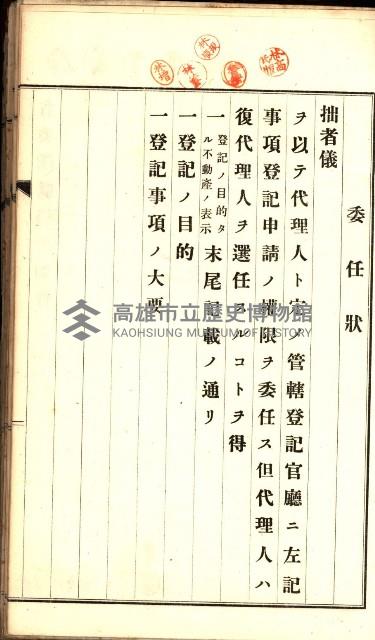 委任狀
拙者儀
ヲ以テ代理人ト定メ管轄登記官廳ニ左記
事項登記申請ノ權限ヲ委任ス但代理人ハ
復代理人ヲ選任スルコトヲ得
一登記ノ目的タル不動産ノ表示 末尾記載ノ通リ
一登記ノ目的
一登記事項ノ大要
高雄市立歷史博物館
KAOHSIUNG MUSEUM OF HISTORY